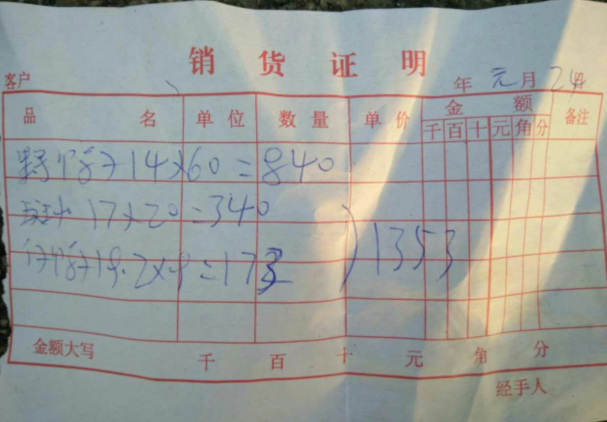 销货证明
客户 年 元月24日
品名 单位 数量 单价 金额 备注
千百十元角分
14×60=840
17×20=340
19.2×9=173
1353
金额大写 千 百 十 元 角 分
经手人